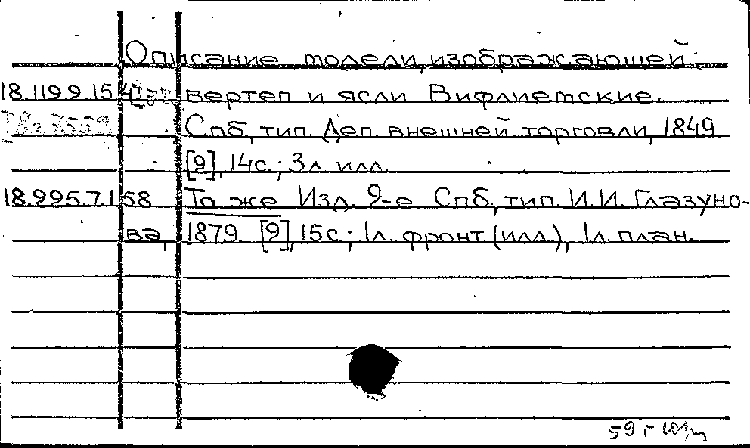 Описание модели, изображающей
18.119.9.154 вертеп и ясли Вифлиемские.
Спб, тип. Деп. внешней торговли, 1849
[2], 14с.; 3л. илл.
18.225.7.158 То же Изд. 2-е Спб, тип. И.И. Глазуно-
ва, 1879 [2], 15с.; 1л. фронт (илл.), 1л. план.